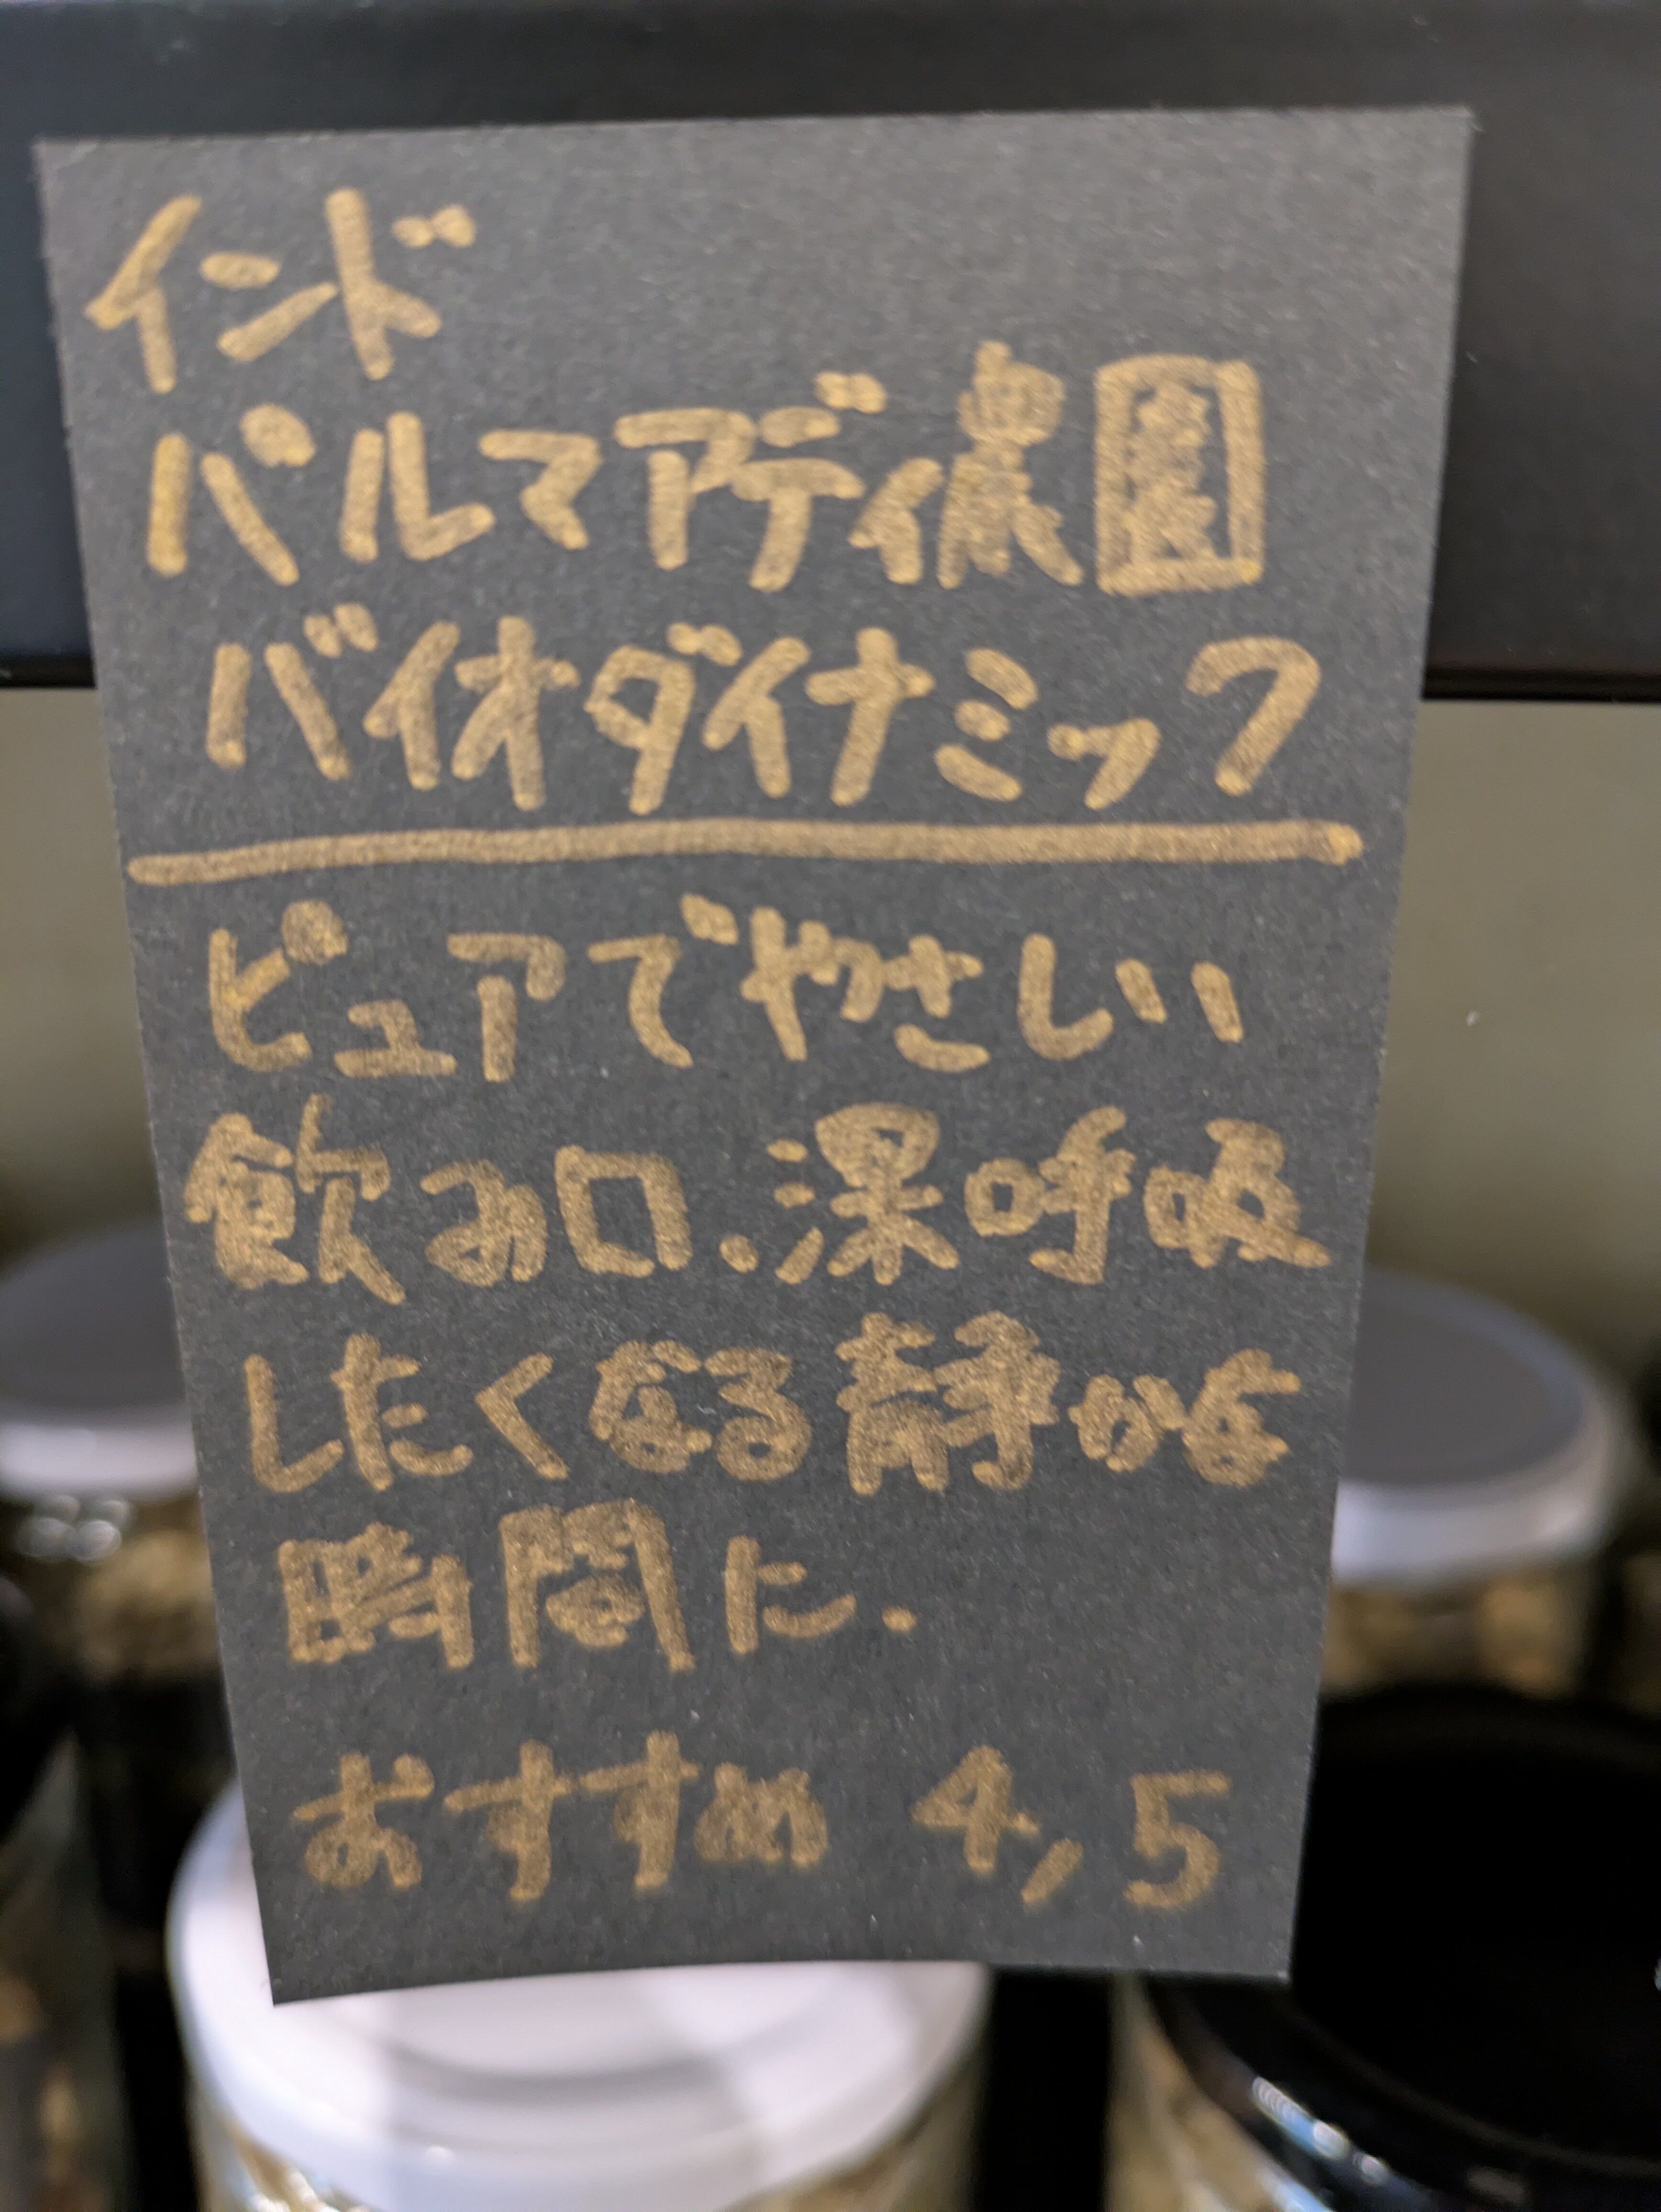 インド
パルマアディ農園
バイオダイナミック
ピュアでやさしい
飲み口.深呼吸
したくなる静かな
時間に.
おすすめ 4,5